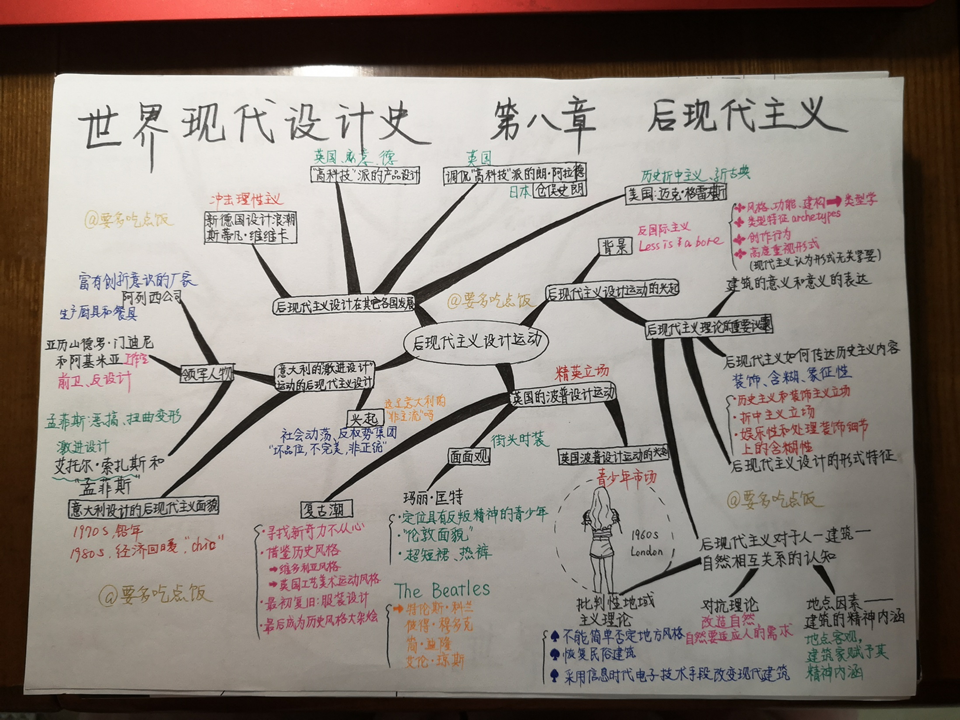 世界现代设计史 第八章 后现代主义
英国、意、德
"高科技"派的产品设计
英国
调侃"高科技"派的朗·阿拉德
日本 仓俣史朗
历史折中主义、新古典
美国:迈克·格雷夫斯
冲击理性主义
新德国设计浪潮
斯蒂凡·维维卡
@要多吃点饭
后现代主义设计在其它各国发展
@要多吃点饭
后现代主义设计运动
背景
反国际主义
Less is a bore
后现代主义设计运动的兴起
风格、功能、建构→类型学
类型特征archetypes
创作行为
高度重视形式
(现代主义认为形式无关紧要)
建筑的意义和意义的表达
后现代主义理论的重要议题
后现代主义如何传达历史主义内容
装饰、含糊、象征性
·历史主义和装饰主义立场
·折中主义立场
·娱乐性和处理装饰细节
上的含糊性
后现代主义设计的形式特征
@要多吃点饭
后现代主义对于人—建筑—
自然相互关系的认知
批判性地域
主义理论
不能简单否定地方风格
恢复民俗建筑
采用信息时代电子技术手段改变现代建筑
对抗理论
改造自然
自然要适应人的需求
地点因素—
建筑的精神内涵
地点客观,
建筑家赋予其
精神内涵
富有创新意识的厂家
阿列西公司
生产厨具和餐具
亚历山德罗·门迪尼
和阿基米亚工作室
前卫、反设计
领军人物
孟菲斯:恶搞、扭曲变形
激进设计
艾托尔·索扎斯和
"孟菲斯"
意大利的"激进设计"
运动的后现代主义设计
兴起
社会动荡、反权势集团
"坏品位,不完美,非正统"
意大利设计的后现代主义面貌
1970s,铅年
1980s,经济回暖,"chic"
@要多吃点饭
精英立场
英国的波普设计运动
复古潮
·寻找新奇力不从心
·借鉴历史风格
→维多利亚风格
→英国工艺美术运动风格
·最初复旧:服装设计
·最后成为历史风格大杂烩
街头时装
面面观
玛丽·匡特
·定位具有反叛精神的青少年
·"伦敦面貌"
·超短裙、热裤
The Beatles
→特伦斯·科兰
彼得·穆多克
艾伦·琼斯
英国波普设计运动的大名
青少年市场
1960s
London